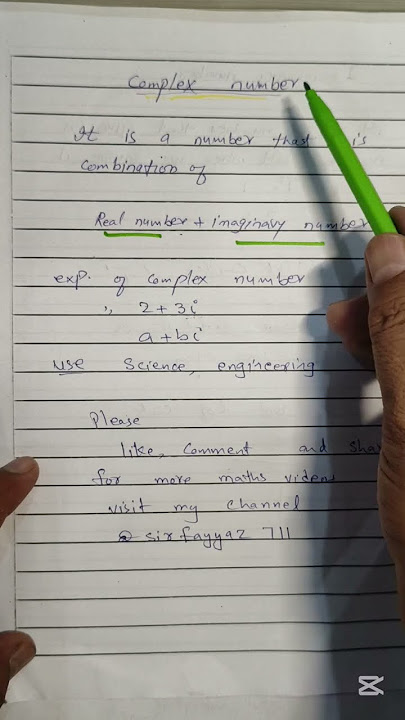 Complex number
It is a number that is
Combination of
Real number + imaginary number
exp. of complex number
2 + 3i
a + bi
use Science, engineering
Please
like, Comment and sha
for more maths videos
visit my channel
@ sirfayyaz 711